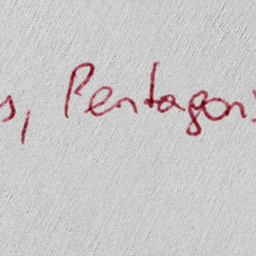 s, Pentagons